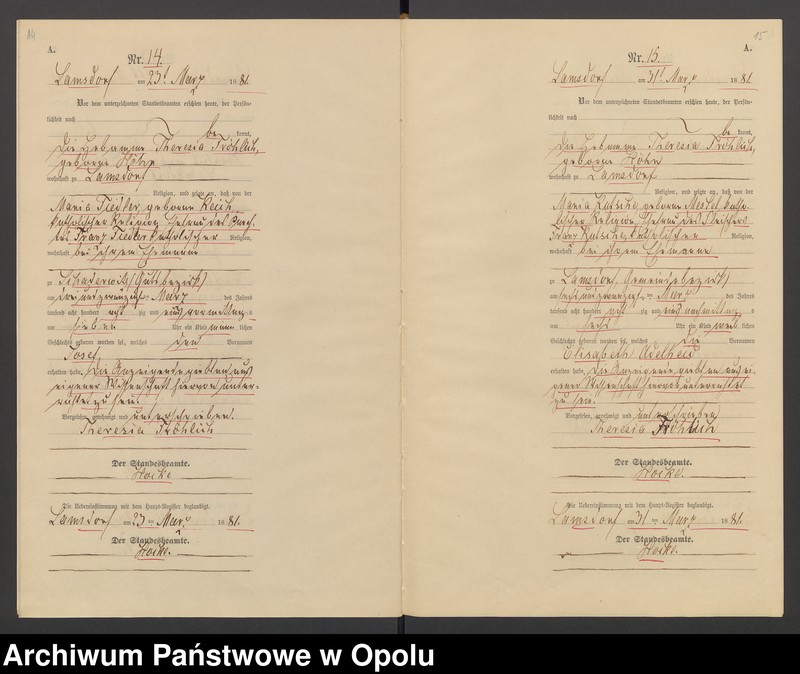 14
A.
Nr. 14.
Lamsdorf am 23t. März 1881.
Vor dem unterzeichneten Standesbeamten erschien heute, der Persön-
lichkeit nach
be kannt,
die Hebamme Theresia Fröhlich,
geborne Höhn
wohnhaft zu Lamsdorf
Religion, und zeigte an, daß von der
Maria Fiedler, geborne Reich,
katholischer Religion Ehefrau des
Franz Fiedler katholischer Religion,
wohnhaft bei ihrem Ehemanne
zu (Gutsbezirk)
am drei und zwanzigsten März des Jahres
tausend acht hundert acht zig und eins vormittags
um sieben Uhr ein Kind männlichen
Geschlechts geboren worden sei, welches den Vornamen
Josef
erhalten habe. Die Anzeigende gab an, aus
eigener Wissenschaft hiervon unter-
richtet zu sein.
Vorgelesen, genehmigt und unterschrieben.
Theresia Fröhlich
Der Standesbeamte.
Hocke
Die Uebereinstimmung mit dem Haupt-Register beglaubigt.
Lamsdorf am 23 ten März 1881.
Der Standesbeamte.
Hocke.
15
A.
Nr. 15.
Lamsdorf am 31t. März 1881
Vor dem unterzeichneten Standesbeamten erschien heute, der Persön-
lichkeit nach
be kannt,
die Hebamme Theresia Fröhlich,
geborne Höhn
wohnhaft zu Lamsdorf
Religion, und zeigte an, daß von der
Maria geborne katho-
lischer Religion Ehefrau des Fleischers
Franz katholischer Religion,
wohnhaft bei ihrem Ehemanne
zu Lamsdorf, Gemeindebezirk
am ten März des Jahres
tausend acht hundert acht zig und eins nachmittags
um sechs Uhr ein Kind weiblichen
Geschlechts geboren worden sei, welches die Vornamen
Elisabeth Adelheid
erhalten habe. Die Anzeigende gab an aus ei-
gener Wissenschaft hiervon unterrichtet
zu sein.
Vorgelesen, genehmigt und unterschrieben
Theresia Fröhlich
Der Standesbeamte.
Hocke.
Die Uebereinstimmung mit dem Haupt-Register beglaubigt.
Lamsdorf am 31 ten März 1881.
Der Standesbeamte.
Hocke.
Archiwum Państwowe w Opolu